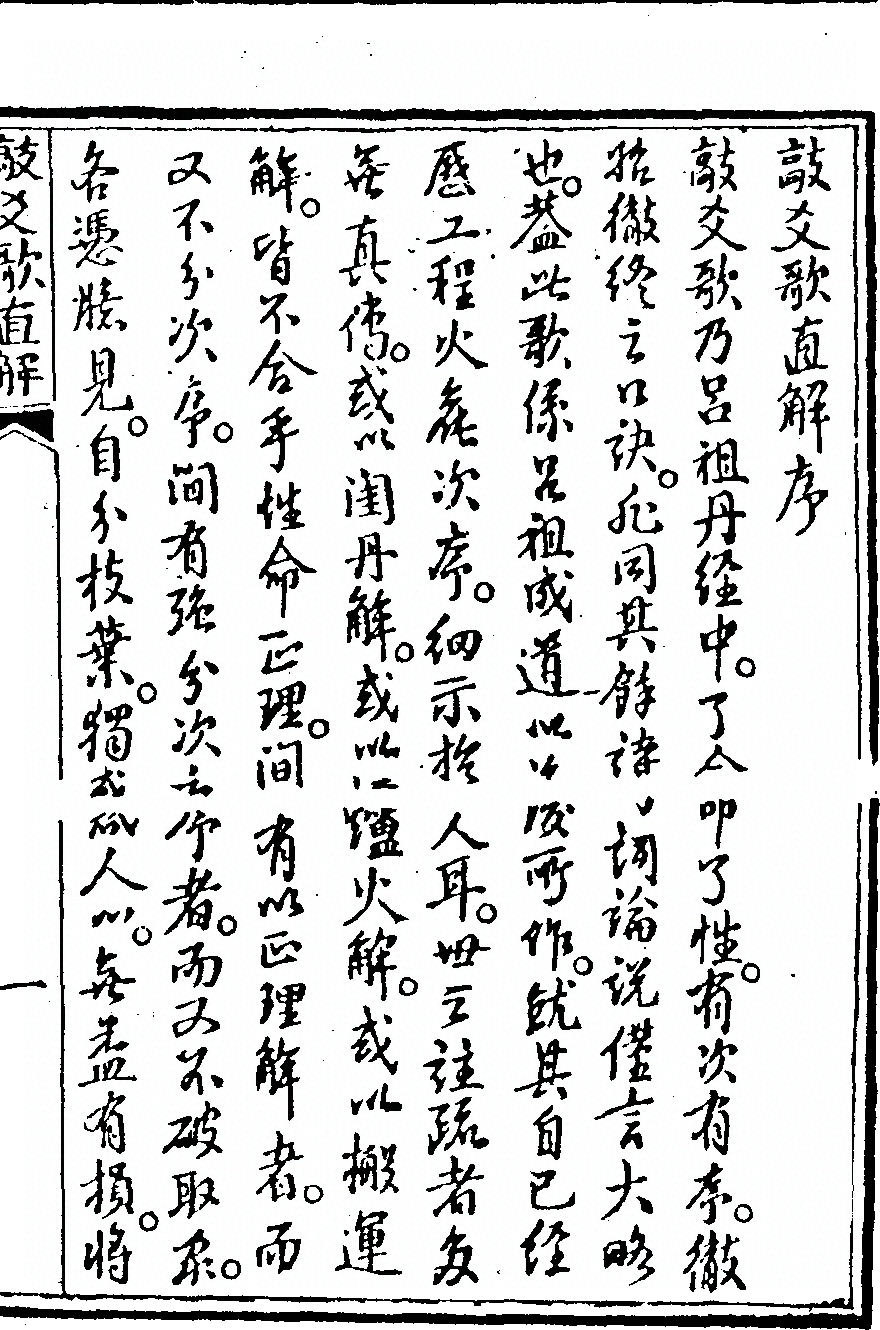 敲爻歌直解序
敲爻歌乃呂祖丹經中。了命了性。有次有序。徹
始徹終之口訣。非同其餘諸詩詞論說僅言大略
也。蓋此歌係呂祖成道以後所作。就其自己經
歷工程火候次序。細示於人耳。世之註疏者多
無真傳。或以閨丹解。或以爐火解。或以搬運
解。皆不合乎性命正理。間有以正理解者。而
又不分次序。間有強分次序者。而又不破取象。
各憑臆見。自分枝葉。獨人。無益有損。將
敲爻歌直解
一